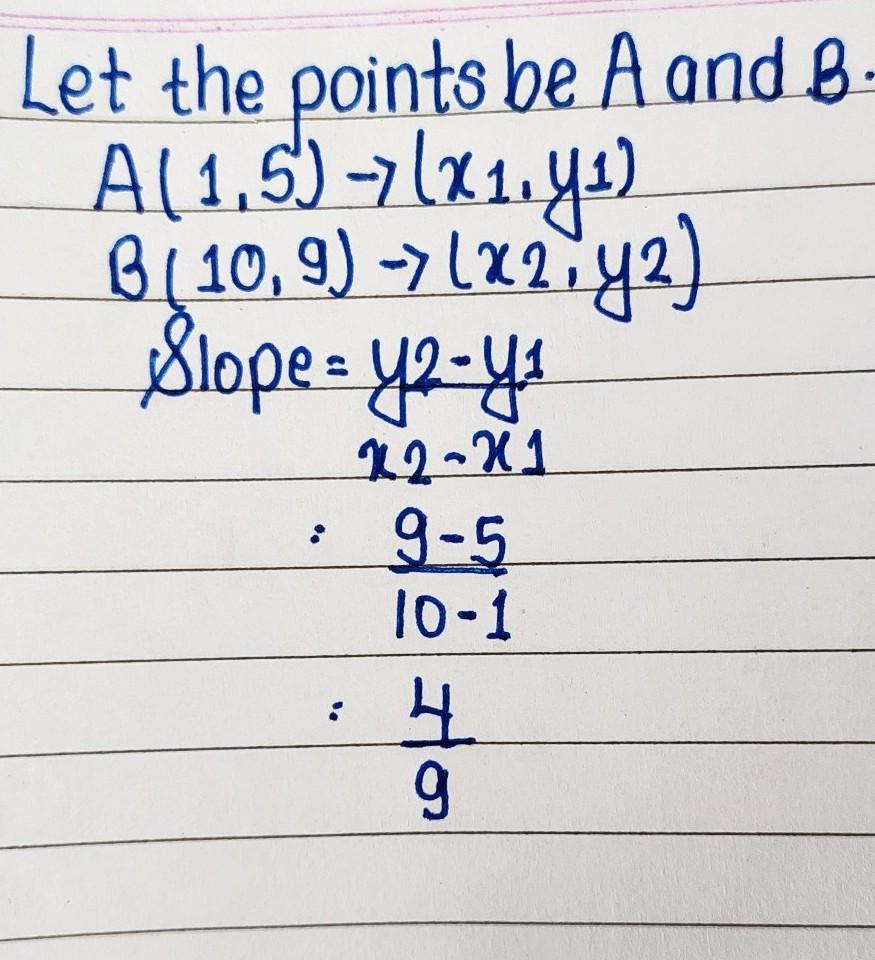 Let the points be A and B.
A(1,5) → (x1, y1)
B(10,9) → (x2, y2)
Slope = y2-y1
x2-x1
: 9-5
10-1
: 4
9